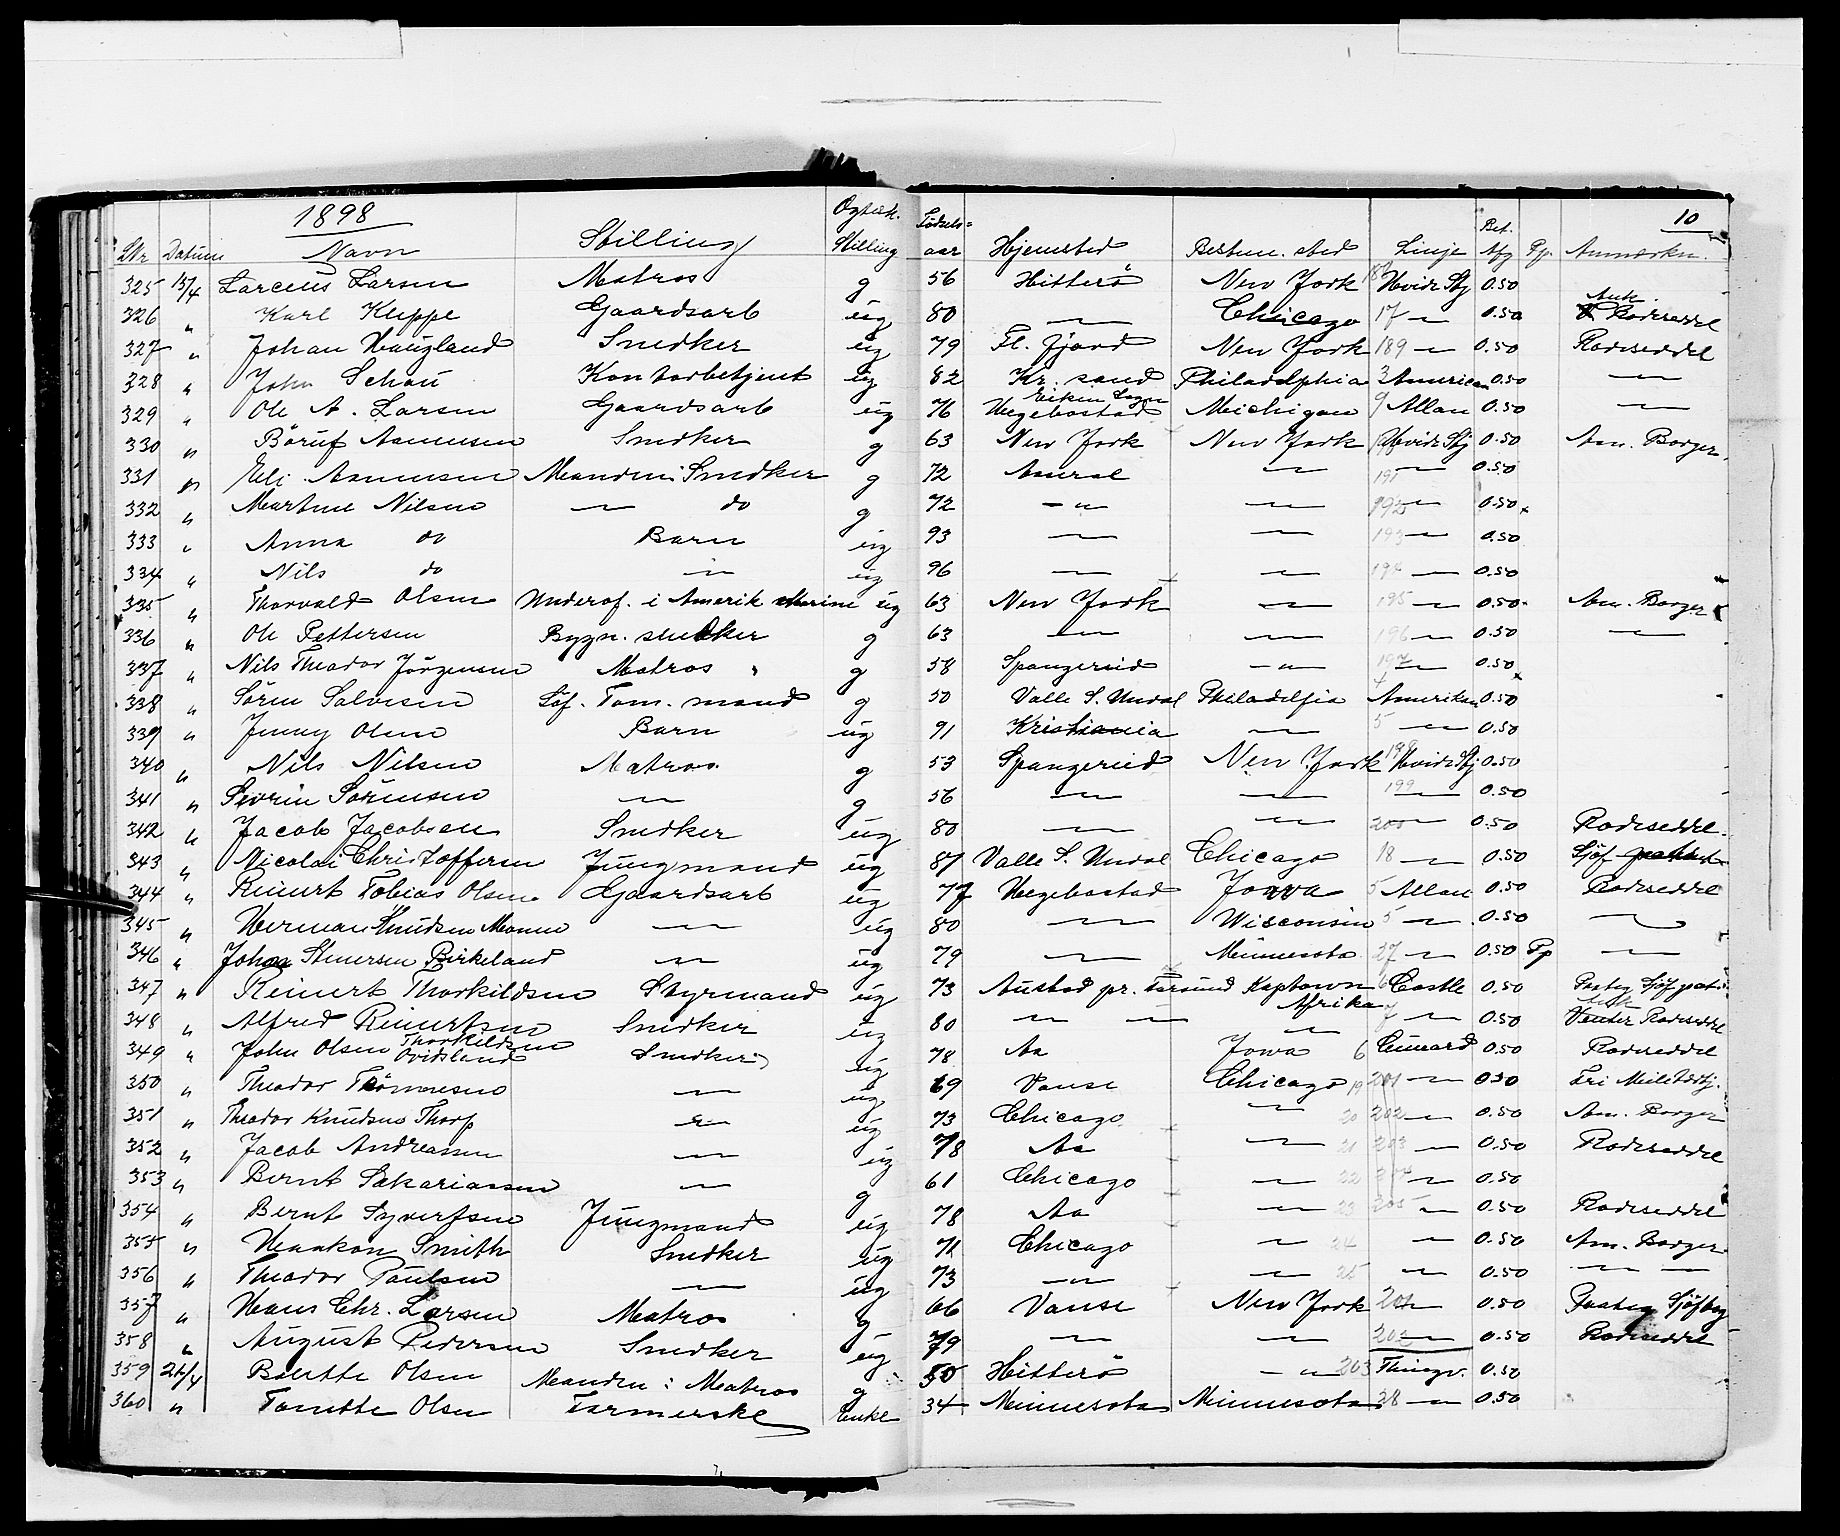 1898 10
Nr Datum Navn Stilling Egtesk. Stilling Fødsels= aar Hjemsted Bestem. sted Linje Bet. Afg Pp. Anmærkn.
325 15/4 Larsen Matros g 56 Hitterö New York Hvide Stj 0.50
326 " Karl Kleppe Gaardsarb ug 80 — Chicago 17 — 0.50 Rodeseddel
327 " Johan Haugland Snedker ug 79 Fl. fjord New York 189 — 0.50 Rodeseddel
328 " John Schou Kontorbetjent ug 82 Kr. sand Philadelphia 3 American 0.50 —
329 " Ole A. Larsen Gaardsarb ug 76 Eiken Sogn Hegebostad Michigan 9 Allan 0.50 —
330 " Börüf Asmunsen Snedker g 63 New York New York Hvide Stj 0.50 Am. Borger
331 " Eli Asmunsen Manden: Snedker g 72 Aaseral — — 0.50
332 " Martine Nilsen — do g 72 — " — — 192 — 0.50
333 " Anna do Barn ug 93 — — 193 — 0.50
334 " Nils do — ug 96 — — 194 — 0.50
335 " Thorvald Olsen Underof. i Amerik Marine ug 63 New York — 195 — 0.50 Am. Borger
336 " Ole Pettersen Bygn. snedker g 63 — — 196 — 0.50 —
337 " Nils Theodor Jörgensen Matros g 58 Spangereid — " — 197 — 0.50
338 " Sören Salvesen Söf. Tøm. mand g 50 Valle S. Undal Philadelfia 4 Amerikan 0.50
339 " Jenny Olsen Barn ug 91 Kristiania — 5 — 0.50
340 " Nils Nilsen Matros g 53 Spangereid New York 198 Hvide Stj 0.50
341 " Severin Sörensen — g 56 — — 199 — 0.50
342 " Jacob Jacobsen Snedker ug 80 — — 200 — 0.50 Rodeseddel
343 " Nicolai Christoffersen Jungmand ug 81 Valle S. Undal Chicago 18 — 0.50 Sjöf patent
344 " Reinert Tobias Olsen Gaardsarb ug 77 Hegebostad Jowa 5 Allan 0.50 Rodeseddel
345 " Herman Knudsen — ug 80 — Wisconsin 5 — 0.50 —
346 " Johan Stenersen Birkeland — ug 79 — Minnesota 27 — 0.50 Pp —
347 " Reinert Thorkildsen Styrmand ug 73 Austad pr. Farsund Kaptown Afrika 6 Castle 0.50 Sjöf
348 " Alfred Reinertsen Snedker ug 80 — — — 7 — 0.50 Rodeseddel
349 " John Olsen Thorkildsen Ovidsland Snedker ug 78 Aa Jowa 6 Cunard 0.50 Rodeseddel
350 " Theodor Tönnesen — ug 69 Vanse Chicago 19 201 — 0.50 Fri Militærtj.
351 " Theodor Knudsen Thorp — ug 73 Chicago — 20 202 — 0.50 Am. Borger
352 " Jacob Andreassen — ug 78 Aa — 21 203 — 0.50 Rodeseddel
353 " Bernt Sakariassen — g 61 Chicago — 22 204 — 0.50
354 " Bernt Syvertsen Jungmand ug 78 Aa — 23 205 — 0.50 Rodeseddel
355 " Haakon Smith Snedker ug 71 Chicago — 24 — 0.50 Am. Borger
356 " Theodor Paulsen — ug 73 — " — — 25 — 0.50 — —
357 " Hans Chr. Larsen Matros g 66 Vanse New York 201 — 0.50 Sjöf
358 " August Pedersen Snedker ug 79 — — 202 — 0.50 Rodeseddel
359 Berthe Olsen Manden: Matros g 50 Hitterö — " — 203 Thingv. 0.50
360 " Tomette Olsen Farmerske Enke 34 Minnesota Minnesota 28 — 0.50